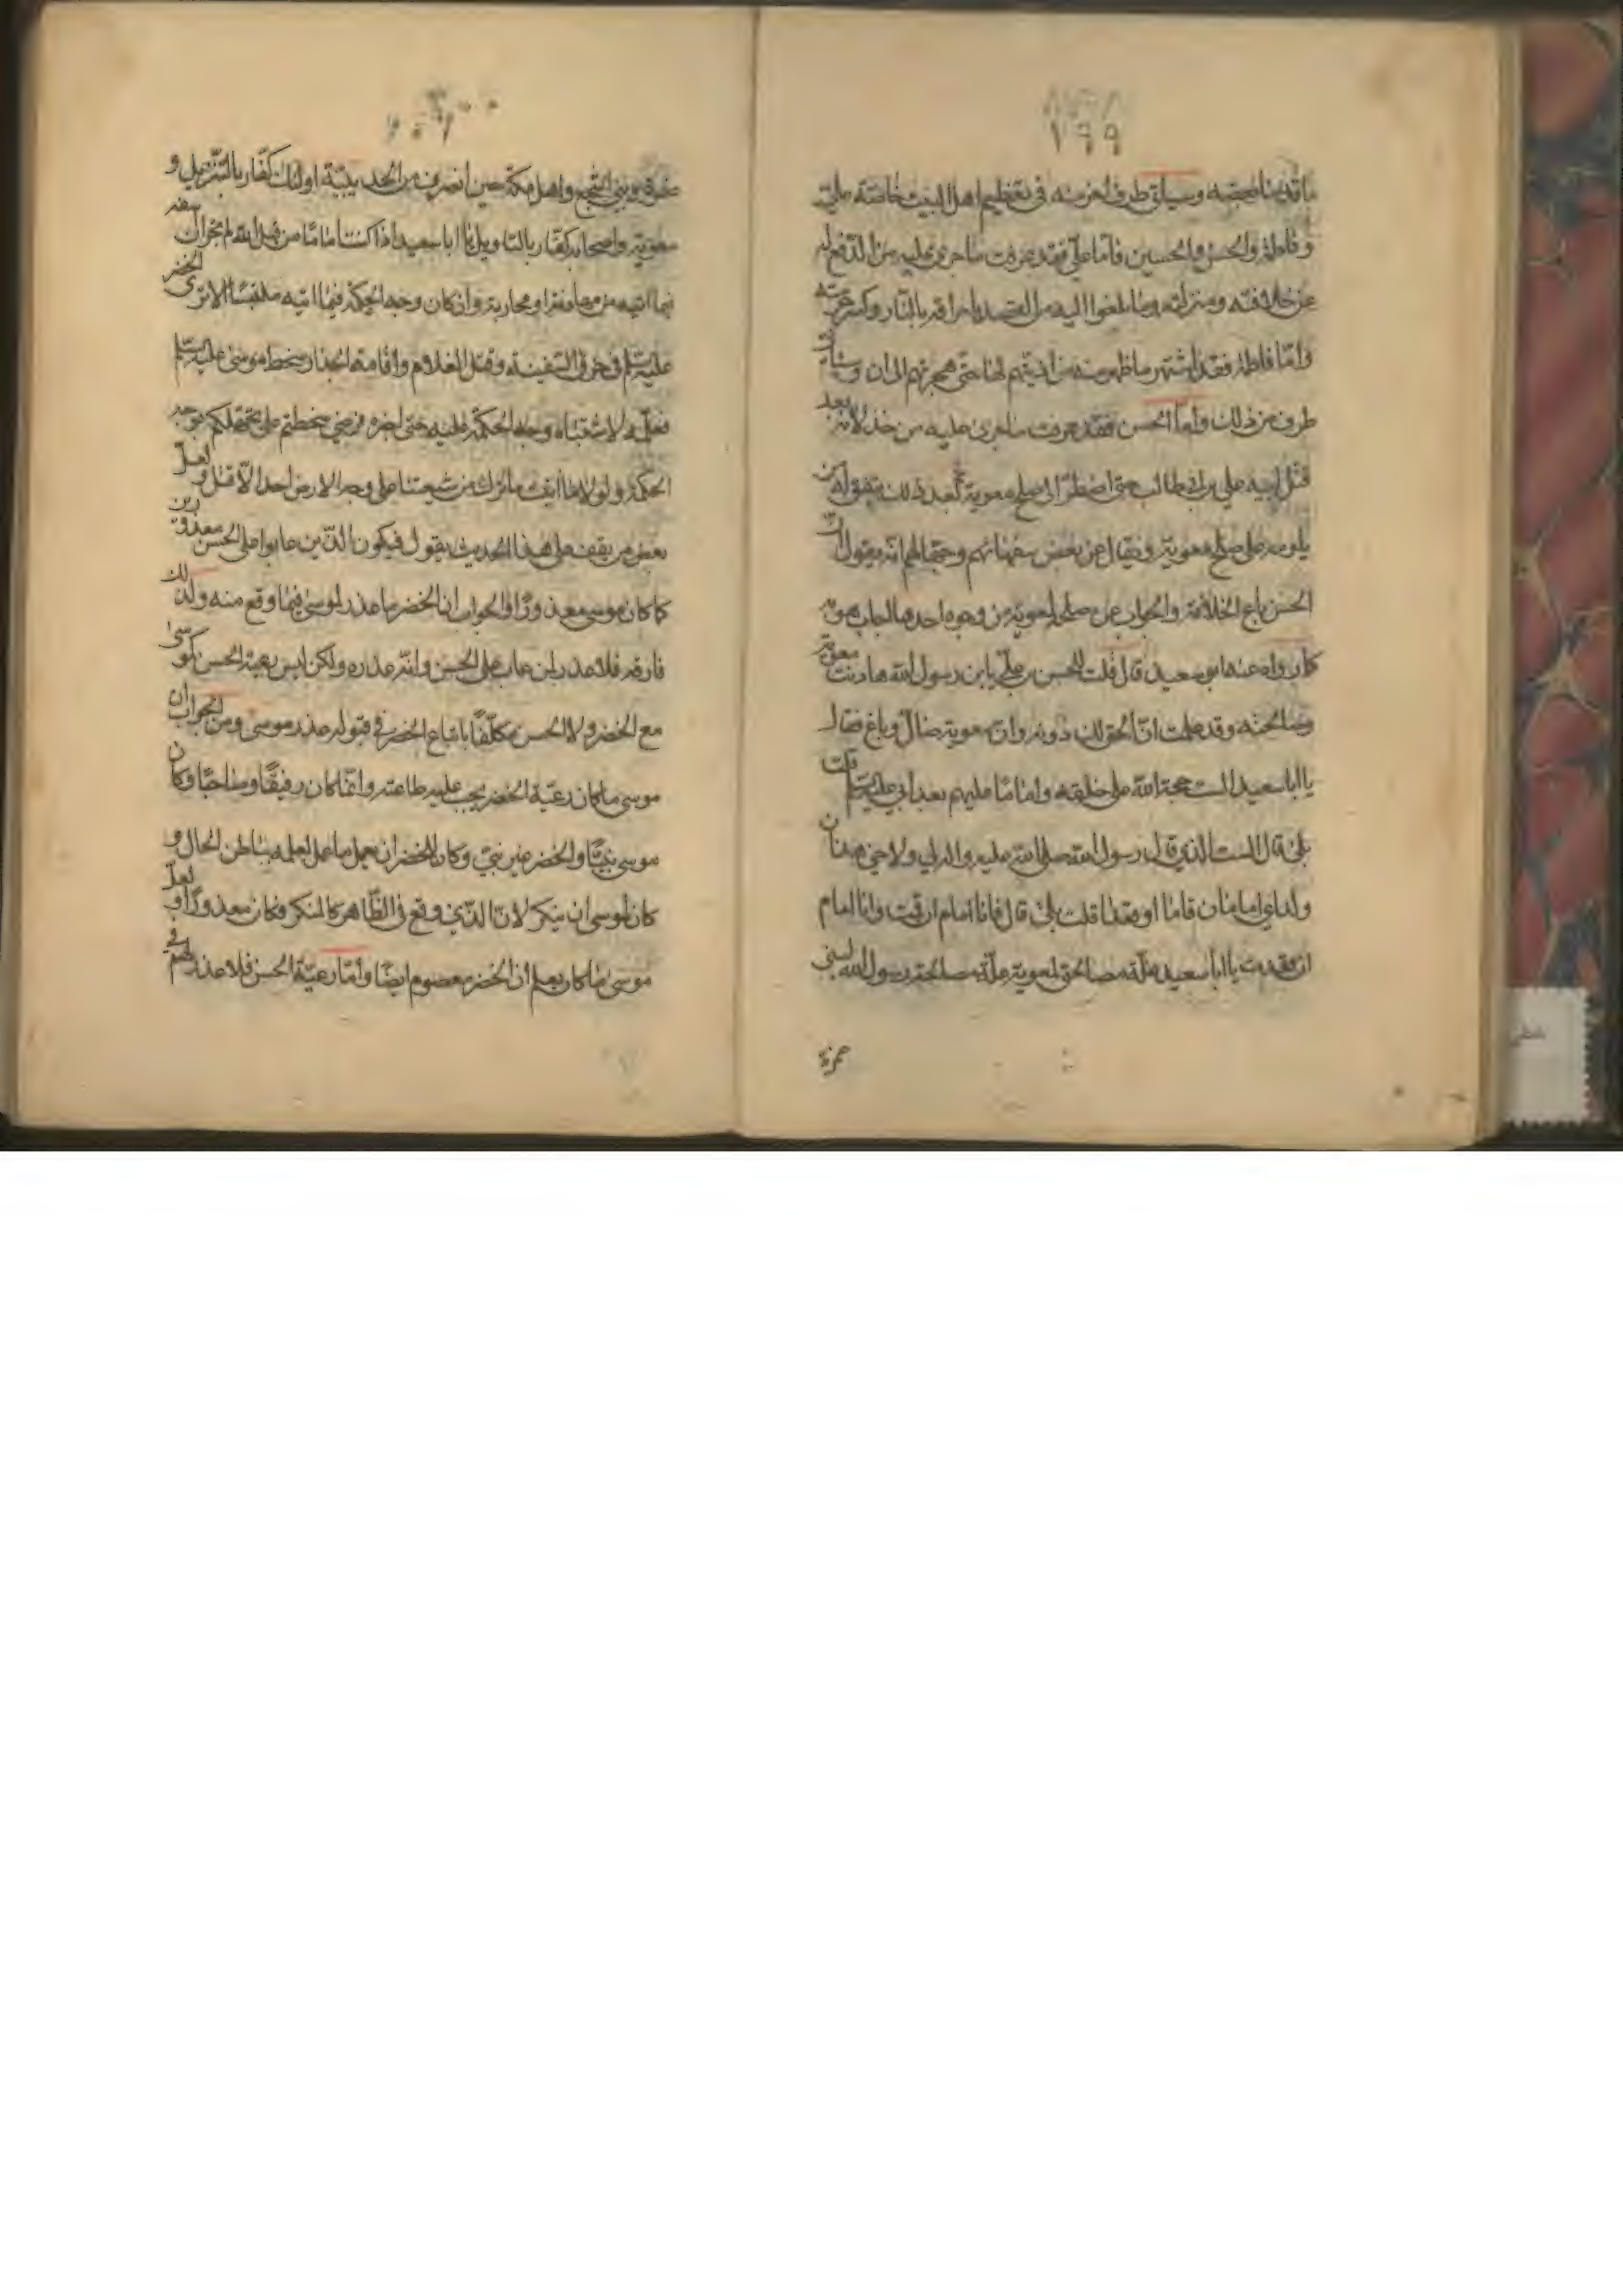 ١٩٩
ما قدمنا بعضه وسيأتي طرف اخر منه في تعظيم اهل البيت خاصة علي
وفاطمة والحسن والحسين فاما علي فقد عرفت ما جرى عليه من الدفع له
عن خلافته ومنزلته وما بلغوا اليه من القصد باحراقه بالنار وكسر حرمته
وامّا فاطمة فقد اشتهر ما ظهر منه من اذيتهم لها حتى هجرتهم الى ان
طرف من ذلك وامّا الحسن فقد عرفت ما جرى عليه من خذلانه بعد
قتل ابيه علي بن ابي طالب حتى اضطرّ الى صلح معوية ثم بعد ذلك
يلومه على صلح معوية ويقال عن بعض سفهائهم وجهّالهم انه يقول انّ
الحسن باع الخلافة والجواب عن صلحه لمعوية من وجوه احدها الجاب هو به
كما رواه عنه ابو سعيد قال قلت للحسن بن عليّ يابن رسول الله هادنت معوية
وصالحته وقد علمت انّ الحق لك دونه وانّ معوية ضالّ وباغ فقال
يا ابا سعيد الست حجة الله على خلقه واماما عليهم بعد ابي عليه السلام قلت
بلى قال الست الذي قال رسول الله صلى الله عليه واله لي ولاخي هذان
ولداي امامان قاما او قعدا قلت بلى قال فانا امام ان قمت وانا امام
ان قعدت يا ابا سعيد علّة مصالحتي لمعوية علّة مصالحة رسول الله لبني
ضمرة
ضمرة وبني اشجع واهل مكة حين انصرف من الحديبيّة اولئك كفّار بالتنزيل و
معوية واصحابه كفّار بالتاويل يا ابا سعيد اذا كنت اماما من قبل الله لم يجز ان يسفه
فيما اتيه من او محاربة وان كان وجه الحكمة فيما اتيه ملتبسًا الا ترى الخضر
عليه السلم في خرق السفينة وقتل الغلام واقامة الجدار سخط موسى عليه السلم
فعله لاشتباه وجه الحكمة عليه حتى اخبره فرضي سخطتم علي بجهلكم بوجه
الحكمة ولولا ما اتيت ما ترك من شيعتنا على وجه الارض احد الّا قتل ولعلّ
بعض من يقف على هذا الحديث يقول فيكون الذّين عابوا على الحسن معذورين
كما كان موسى معذورًا والجواب ان الخضر ما عذر لموسى فيما وقع منه ولذلك
فارقه فلا عذر لمن عاب على الحسن وانّه عذره ولكن ليس رعية الحسن كموسى
مع الخضر ولا الحسن مكلّفًا باتباع الخضر في قبوله عذر موسى ومن الجواب ان
موسى ما كان رعيّة الخضر يجب عليه طاعته وانّما كان رفيقًا وصاحبًا وكان
موسى نبيًّا والخضر غير نبيّ وكان للخضر ان يعمل ما عمل لعلمه بباطن الحال و
كان لموسى ان ينكر لانّ الذّي وقع في الظّاهر كالمنكر فكان معذورًا ولعلّ
موسى ما كان يعلم ان الخضر معصوم ايضًا وأمّا رعيّة الحسن فلا عذر لهم في